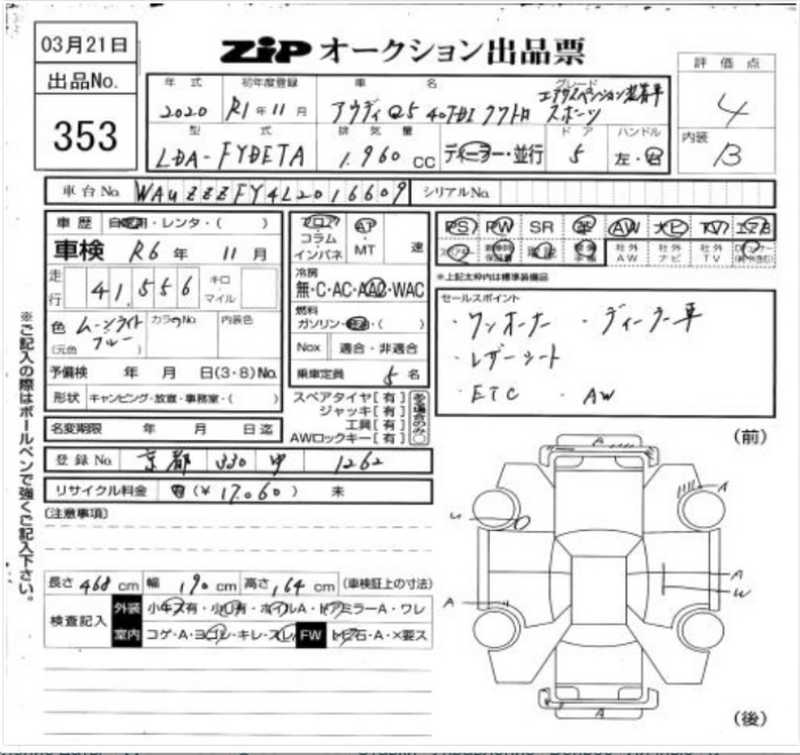 03月21日
ZiP オークション出品票
出品No.
353
年式 初年度登録 車名 グレード
2020 R1年11月 アウディQ5 40TDI クワトロ スポーツ
エアサスペンション装着車
型式 排気量 ドア ハンドル
LDA-FYDETA 1,960 CC ディーラー・並行 5 左・右
評価点
4
内装
B
車台No. WAUZZZFY4L2016609 シリアルNo.
車歴 自家用・レンタ・( )
車検 R6年 11月
走行 41,556 キロ・マイル
色 ムーンライトブルー カラーNo. 内装色
(元色)
予備検 年 月 日(3・8)No.
形状 キャンピング・放宣・事務室・( )
名変期限 年 月 日迄
フロア コラム インパネ
AT MT 速
冷房
無・C・AC・AAC・WAC
燃料
ガソリン・軽油・( )
Nox 適合・非適合
乗車定員 5名
スペアタイヤ[有]
ジャッキ[有]
工具[有]
AWロックキー[有]
PS PW SR 革 AW ナビ TV エアB
社外AW 社外ナビ 社外TV
※上記太枠内は標準装備品
セールスポイント
・ワンオーナー ・ディーラー車
・レザーシート
・ETC ・AW
登録No. 京都 330 ゆ 1262
リサイクル料金 有(¥17,060) 未
(注意事項)
長さ 468 cm 幅 190 cm 高さ 164 cm (車検証上の寸法)
検査記入
外装 小キズ有・小凹有・ホイルA・ドアミラーA・ワレ
室内 コゲ・A・ヨゴレ・キレ・スレ FW トビ石・A・×要ス
※ご記入の際はボールペンで強くご記入下さい。
(前)
A
A
U
A
W
A
A
(後)